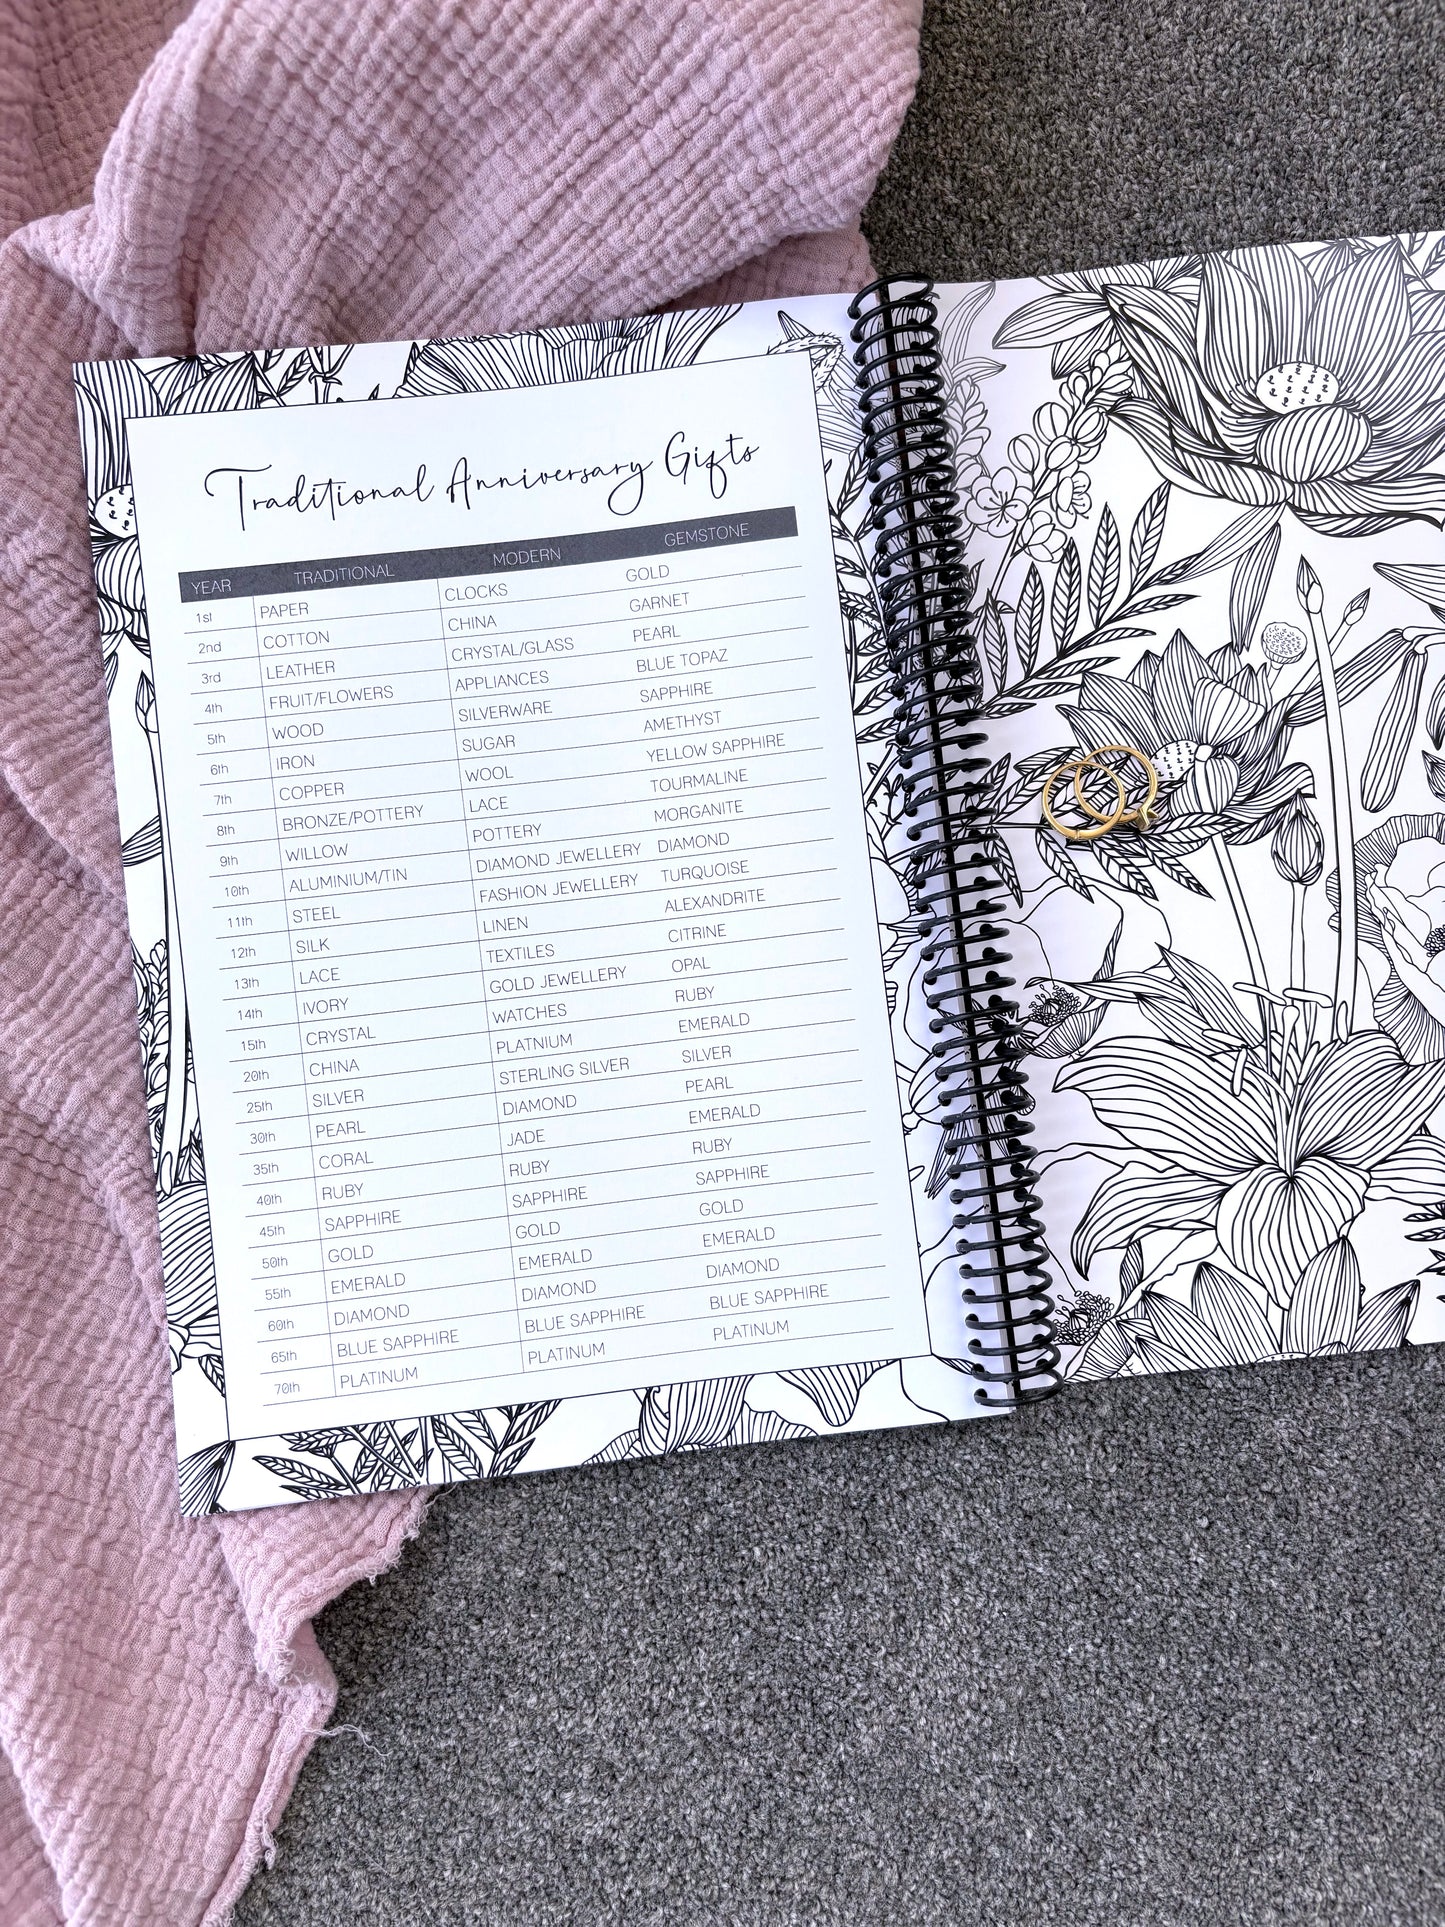 Traditional Anniversary Gifts
YEAR TRADITIONAL MODERN GEMSTONE
1st PAPER CLOCKS GOLD
2nd COTTON CHINA GARNET
3rd LEATHER CRYSTAL/GLASS PEARL
4th FRUIT/FLOWERS APPLIANCES BLUE TOPAZ
5th WOOD SILVERWARE SAPPHIRE
6th IRON SUGAR AMETHYST
7th COPPER WOOL YELLOW SAPPHIRE
8th BRONZE/POTTERY LACE TOURMALINE
9th WILLOW POTTERY MORGANITE
10th ALUMINIUM/TIN DIAMOND JEWELLERY DIAMOND
11th STEEL FASHION JEWELLERY TURQUOISE
12th SILK LINEN ALEXANDRITE
13th LACE TEXTILES CITRINE
14th IVORY GOLD JEWELLERY OPAL
15th CRYSTAL WATCHES RUBY
20th CHINA PLATNIUM EMERALD
25th SILVER STERLING SILVER SILVER
30th PEARL DIAMOND PEARL
35th CORAL JADE EMERALD
40th RUBY RUBY RUBY
45th SAPPHIRE SAPPHIRE SAPPHIRE
50th GOLD GOLD GOLD
55th EMERALD EMERALD EMERALD
60th DIAMOND DIAMOND DIAMOND
65th BLUE SAPPHIRE BLUE SAPPHIRE BLUE SAPPHIRE
70th PLATINUM PLATINUM PLATINUM